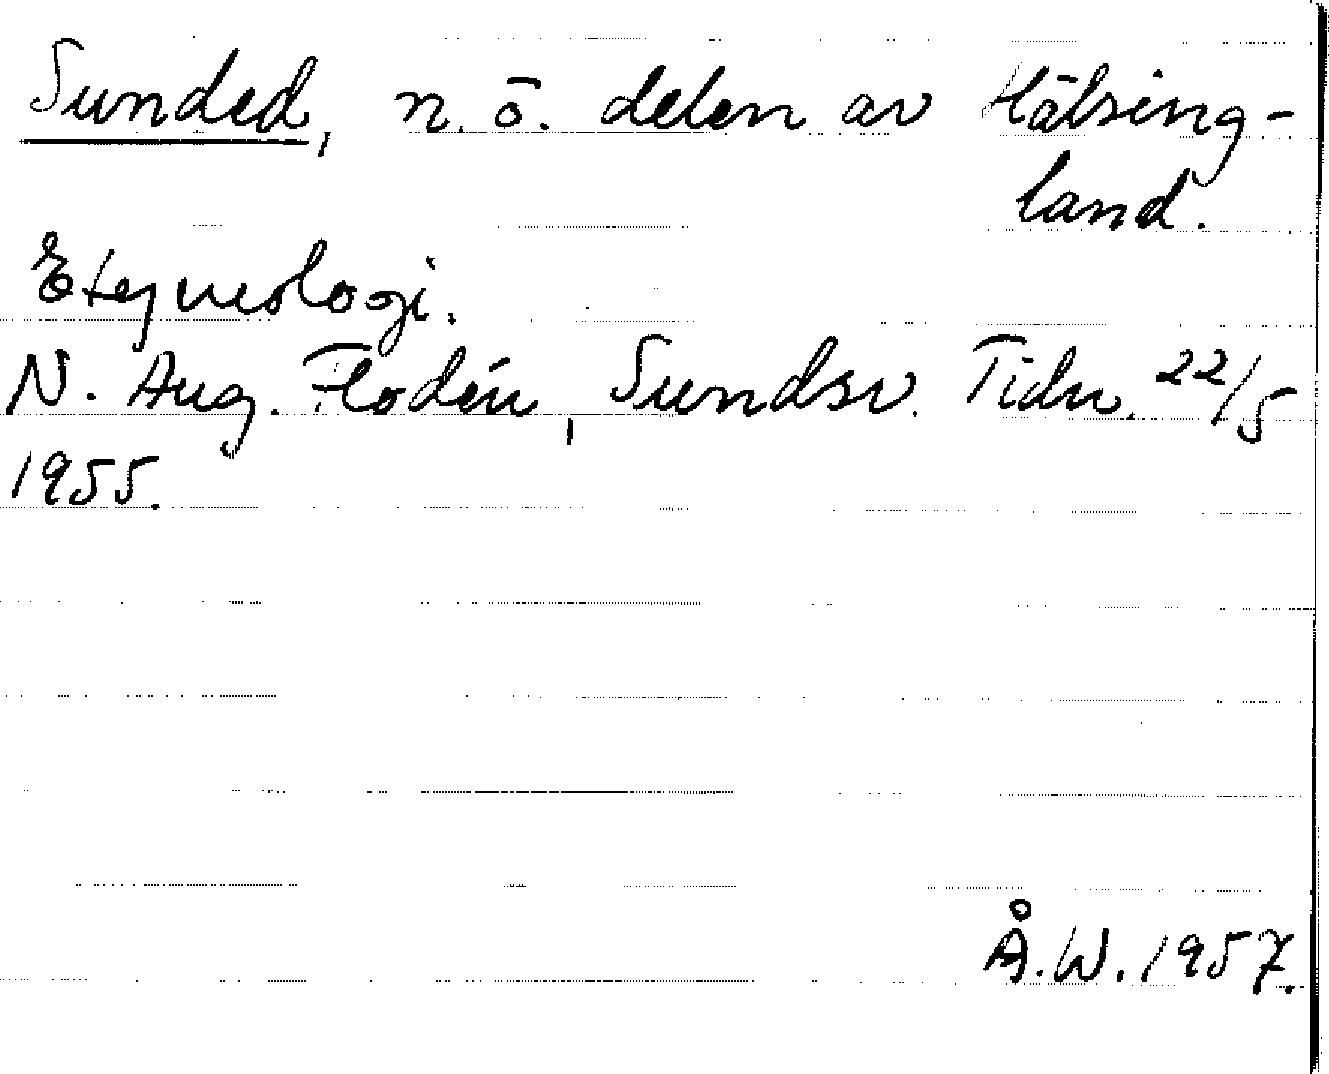 Sunded, n. ö. delen av Hälsing-
land.
Etymologi.
N. Aug. Flodén, Sundsv. Tidn. 22/5
1955.
Å.W. 1957.